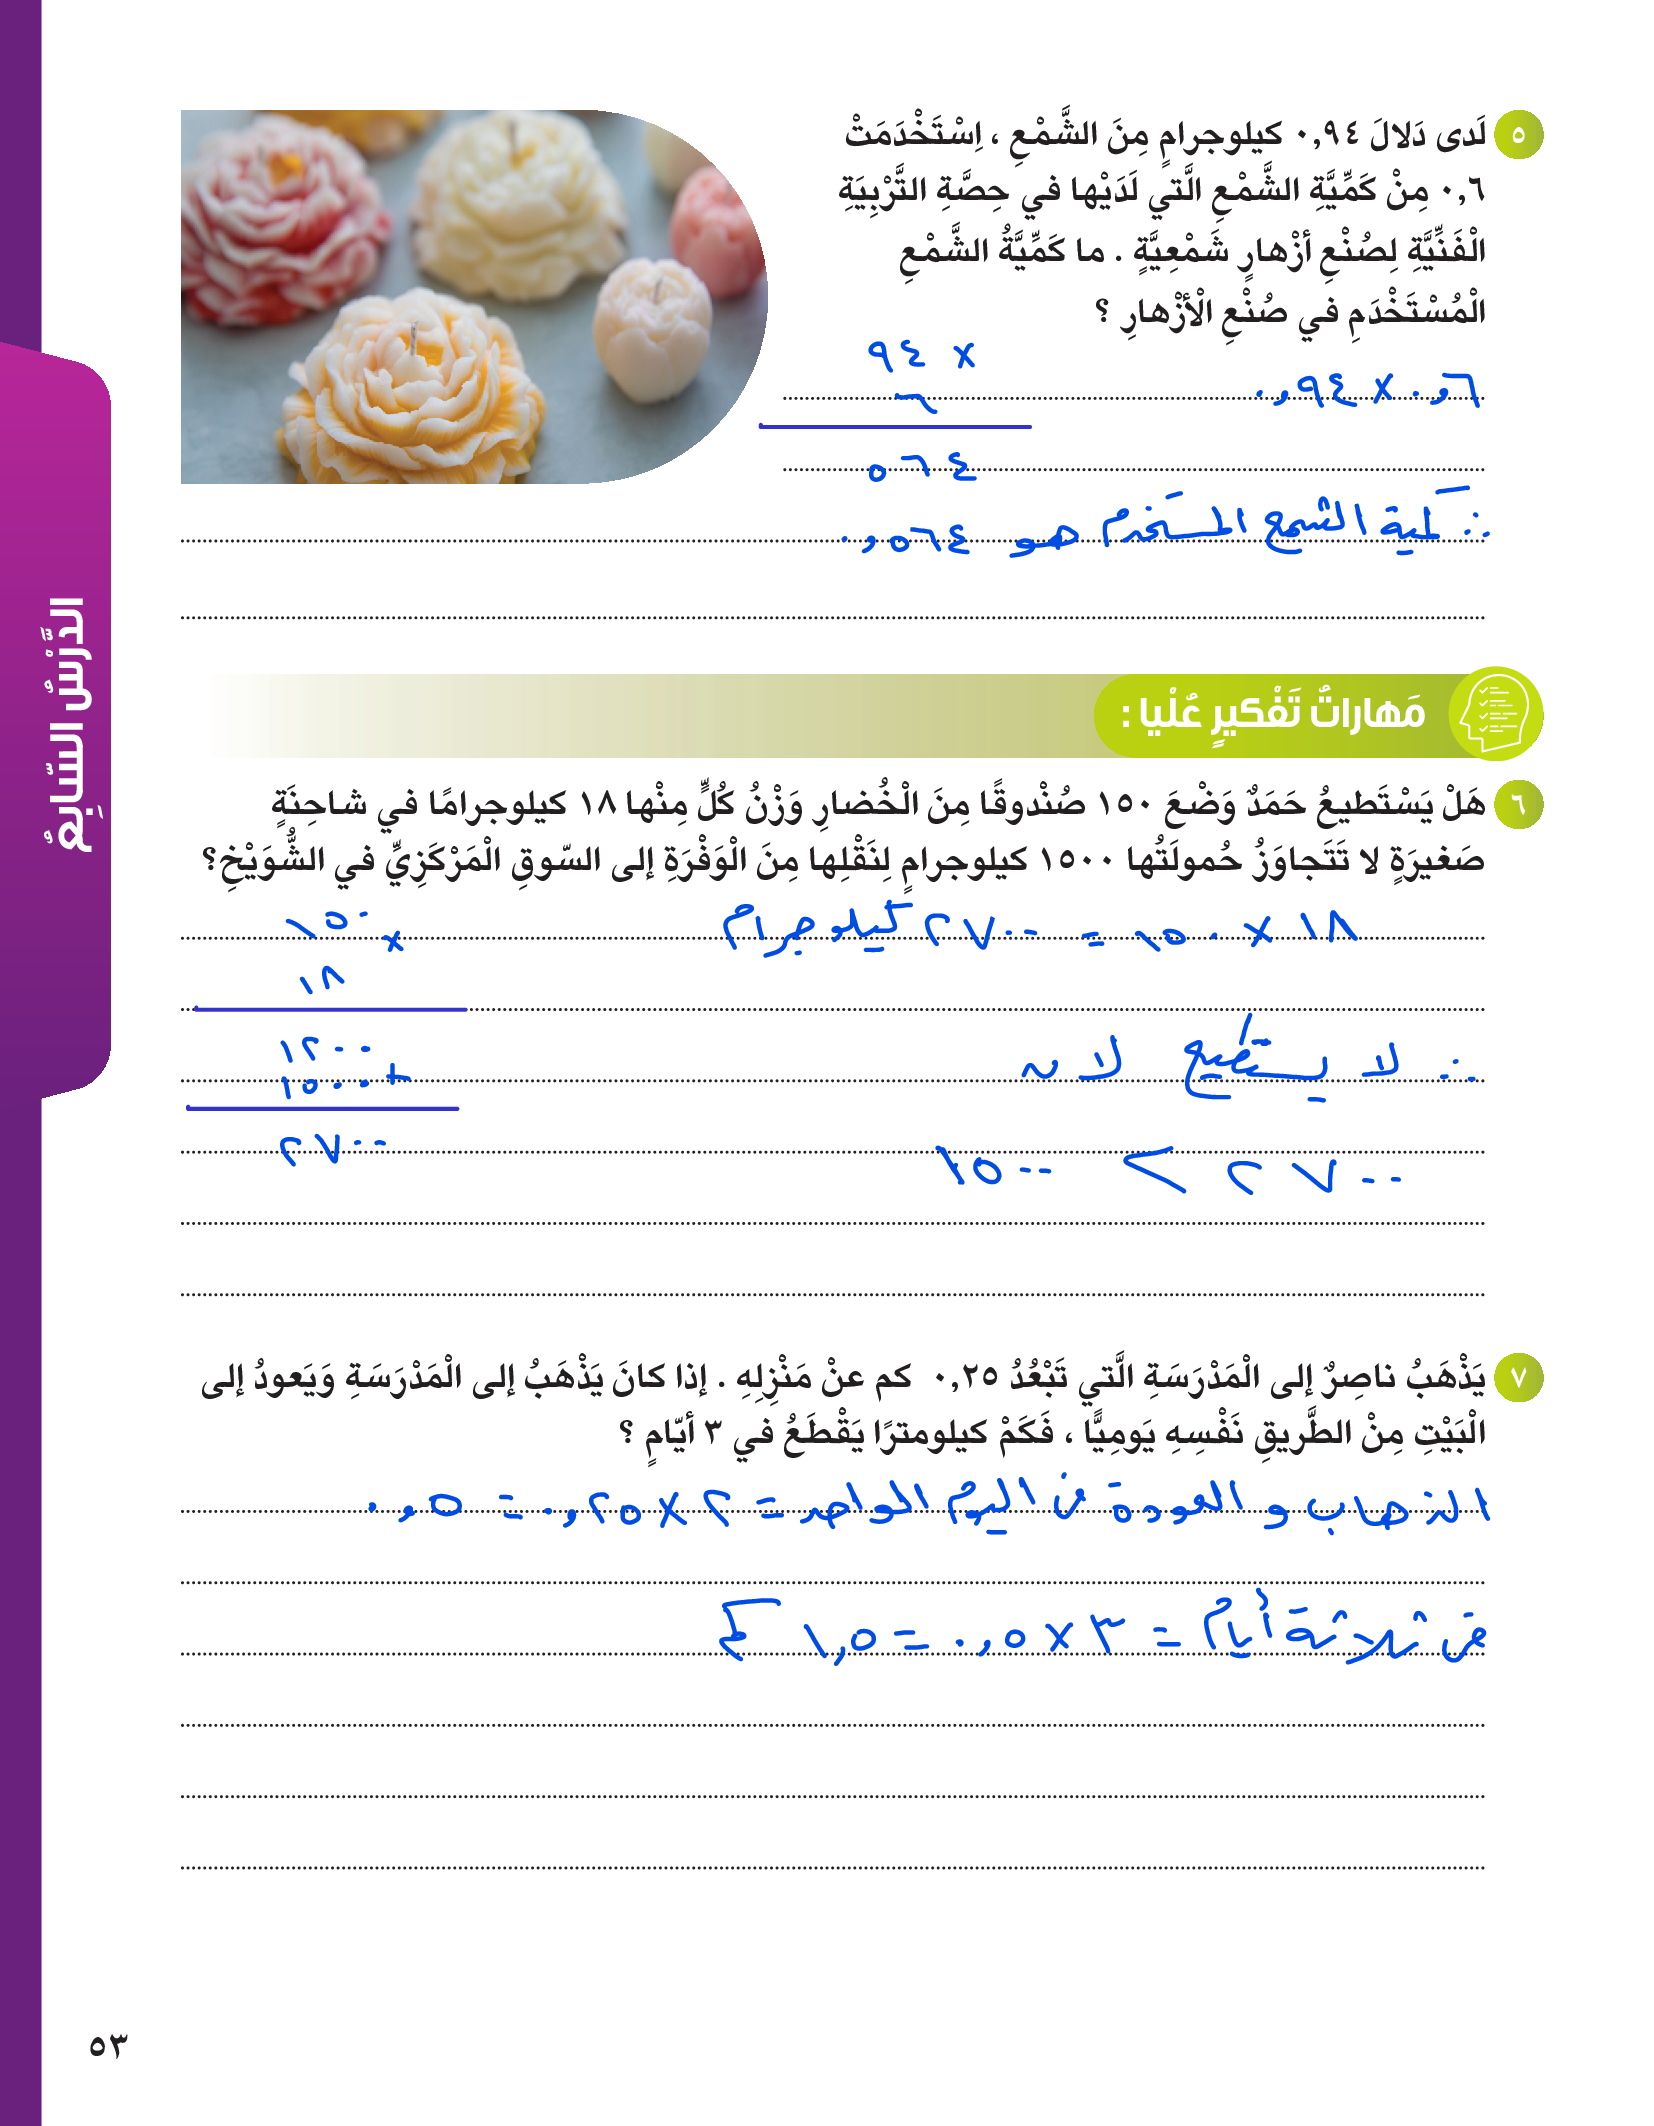 ٥ لَدى دَلالَ ٠,٩٤ كيلوجرامٍ مِنَ الشَّمْعِ ، اِسْتَخْدَمَتْ
٠,٦ مِنْ كَمِّيَّةِ الشَّمْعِ الَّتي لَدَيْها في حِصَّةِ التَّرْبِيَةِ
الْفَنِّيَّةِ لِصُنْعِ أزْهارٍ شَمْعِيَّةٍ . ما كَمِّيَّةُ الشَّمْعِ
الْمُسْتَخْدَمِ في صُنْعِ الْأزْهارِ ؟
٠,٩٤ × ٠,٦
٩٤ ×
٦
٥٦٤
∴ كمية الشمع المستخدم هو ٠,٥٦٤
مَهاراتُ تَفْكيرٍ عُلْيا :
٦ هَلْ يَسْتَطيعُ حَمَدٌ وَضْعَ ١٥٠ صُنْدوقًا مِنَ الْخُضارِ وَزْنُ كُلٍّ مِنْها ١٨ كيلوجرامًا في شاحِنَةٍ
صَغيرَةٍ لا تَتَجاوَزُ حُمولَتُها ١٥٠٠ كيلوجرامٍ لِنَقْلِها مِنَ الْوَفْرَةِ إلى السّوقِ الْمَرْكَزِيِّ في الشُّوَيْخِ؟
١٨ × ١٥٠ = ٢٧٠٠ كيلوجرام
١٥٠ ×
١٨
١٢٠٠
١٥٠٠ +
٢٧٠٠
∴ لا يستطيع لأن
٢٧٠٠ > ١٥٠٠
٧ يَذْهَبُ ناصِرٌ إلى الْمَدْرَسَةِ الَّتي تَبْعُدُ ٠,٢٥ كم عنْ مَنْزِلِهِ . إذا كانَ يَذْهَبُ إلى الْمَدْرَسَةِ وَيَعودُ إلى
الْبَيْتِ مِنْ الطَّريقِ نَفْسِهِ يَومِيًّا ، فَكَمْ كيلومترًا يَقْطَعُ في ٣ أيّامٍ ؟
الذهاب و العودة في اليوم الواحد = ٢ × ٠,٢٥ = ٠,٥
في ثلاثة أيام = ٣ × ٠,٥ = ١,٥ كم
الدَّرْسُ السّابِعُ
٥٣